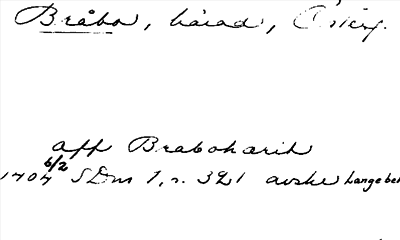 Bråbo, härad, Österg.
aff Braboharih
1404 6/2 SDns 1, s. 321 avskr Langebek